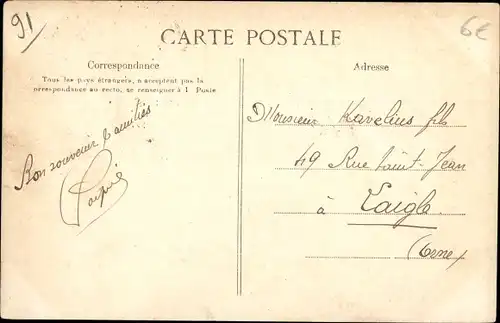 91
6€
CARTE POSTALE
Correspondance
Tous les pays étrangers, n acceptent pas la
correspondance au recto, se renseigner à l Poste
Adresse
Bon souvenir familles
Monsieur Kavelius fils
49 Rue Saint-Jean
à Laigle
(Orne)